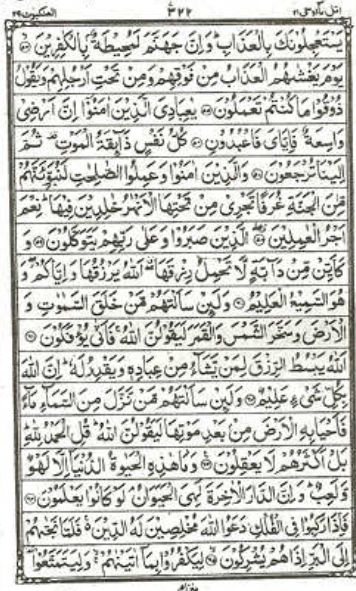 اتل ما اوحی ۲۱ ۳۲۲ العنکبوت ۲۹
يَسْتَعْجِلُوْنَكَ بِالْعَذَابِ ؕ وَاِنَّ جَهَنَّمَ لَمُحِيْطَةٌۢ بِالْكٰفِرِيْنَ ۙ‏﴿۵۴﴾
يَوْمَ يَغْشٰٮهُمُ الْعَذَابُ مِنْ فَوْقِهِمْ وَمِنْ تَحْتِ اَرْجُلِهِمْ وَيَقُوْلُ
ذُوْقُوْا مَا كُنْتُمْ تَعْمَلُوْنَ ﴿۵۵﴾ يٰعِبَادِىَ الَّذِيْنَ اٰمَنُوْۤا اِنَّ اَرْضِىْ
وَاسِعَةٌ فَاِيَّاىَ فَاعْبُدُوْنِ ﴿۵۶﴾ كُلُّ نَفْسٍ ذَآٮِٕقَةُ الْمَوْتِ ثُمَّ
اِلَيْنَا تُرْجَعُوْنَ ﴿۵۷﴾ وَالَّذِيْنَ اٰمَنُوْا وَعَمِلُوا الصّٰلِحٰتِ لَنُبَوِّئَنَّهُمْ
مِّنَ الْجَنَّةِ غُرَفًا تَجْرِىْ مِنْ تَحْتِهَا الْاَنْهٰرُ خٰلِدِيْنَ فِيْهَا ؕ نِعْمَ
اَجْرُ الْعٰمِلِيْنَ ﴿۵۸﴾ الَّذِيْنَ صَبَرُوْا وَعَلٰى رَبِّهِمْ يَتَوَكَّلُوْنَ ﴿۵۹﴾ وَ
كَاَيِّنْ مِّنْ دَآبَّةٍ لَّا تَحْمِلُ رِزْقَهَا ۖ اَللّٰهُ يَرْزُقُهَا وَاِيَّاكُمْ ۖ وَ
هُوَ السَّمِيْعُ الْعَلِيْمُ ﴿۶۰﴾ وَلَٮِٕنْ سَاَلْتَهُمْ مَّنْ خَلَقَ السَّمٰوٰتِ وَ
الْاَرْضَ وَسَخَّرَ الشَّمْسَ وَالْقَمَرَ لَيَقُوْلُنَّ اللّٰهُ ۚ فَاَنّٰى يُؤْفَكُوْنَ ﴿۶۱﴾
اَللّٰهُ يَبْسُطُ الرِّزْقَ لِمَنْ يَّشَآءُ مِنْ عِبَادِهٖ وَيَقْدِرُ لَهٗ ؕ اِنَّ اللّٰهَ
بِكُلِّ شَىْءٍ عَلِيْمٌ ﴿۶۲﴾ وَلَٮِٕنْ سَاَلْتَهُمْ مَّنْ نَّزَّلَ مِنَ السَّمَآءِ مَآءً
فَاَحْيَا بِهِ الْاَرْضَ مِنْۢ بَعْدِ مَوْتِهَا لَيَقُوْلُنَّ اللّٰهُ ؕ قُلِ الْحَمْدُ لِلّٰهِ ؕ
بَلْ اَكْثَرُهُمْ لَا يَعْقِلُوْنَ ﴿۶۳﴾ وَمَا هٰذِهِ الْحَيٰوةُ الدُّنْيَاۤ اِلَّا لَهْوٌ
وَّلَعِبٌ ؕ وَاِنَّ الدَّارَ الْاٰخِرَةَ لَهِىَ الْحَيَوَانُ ۘ لَوْ كَانُوْا يَعْلَمُوْنَ ﴿۶۴﴾
فَاِذَا رَكِبُوْا فِى الْفُلْكِ دَعَوُا اللّٰهَ مُخْلِصِيْنَ لَهُ الدِّيْنَ ۚ فَلَمَّا نَجّٰٮهُمْ
اِلَى الْبَرِّ اِذَا هُمْ يُشْرِكُوْنَ ﴿۶۵﴾ لِيَكْفُرُوْا بِمَاۤ اٰتَيْنٰهُمْ ۙ وَلِيَتَمَتَّعُوْا